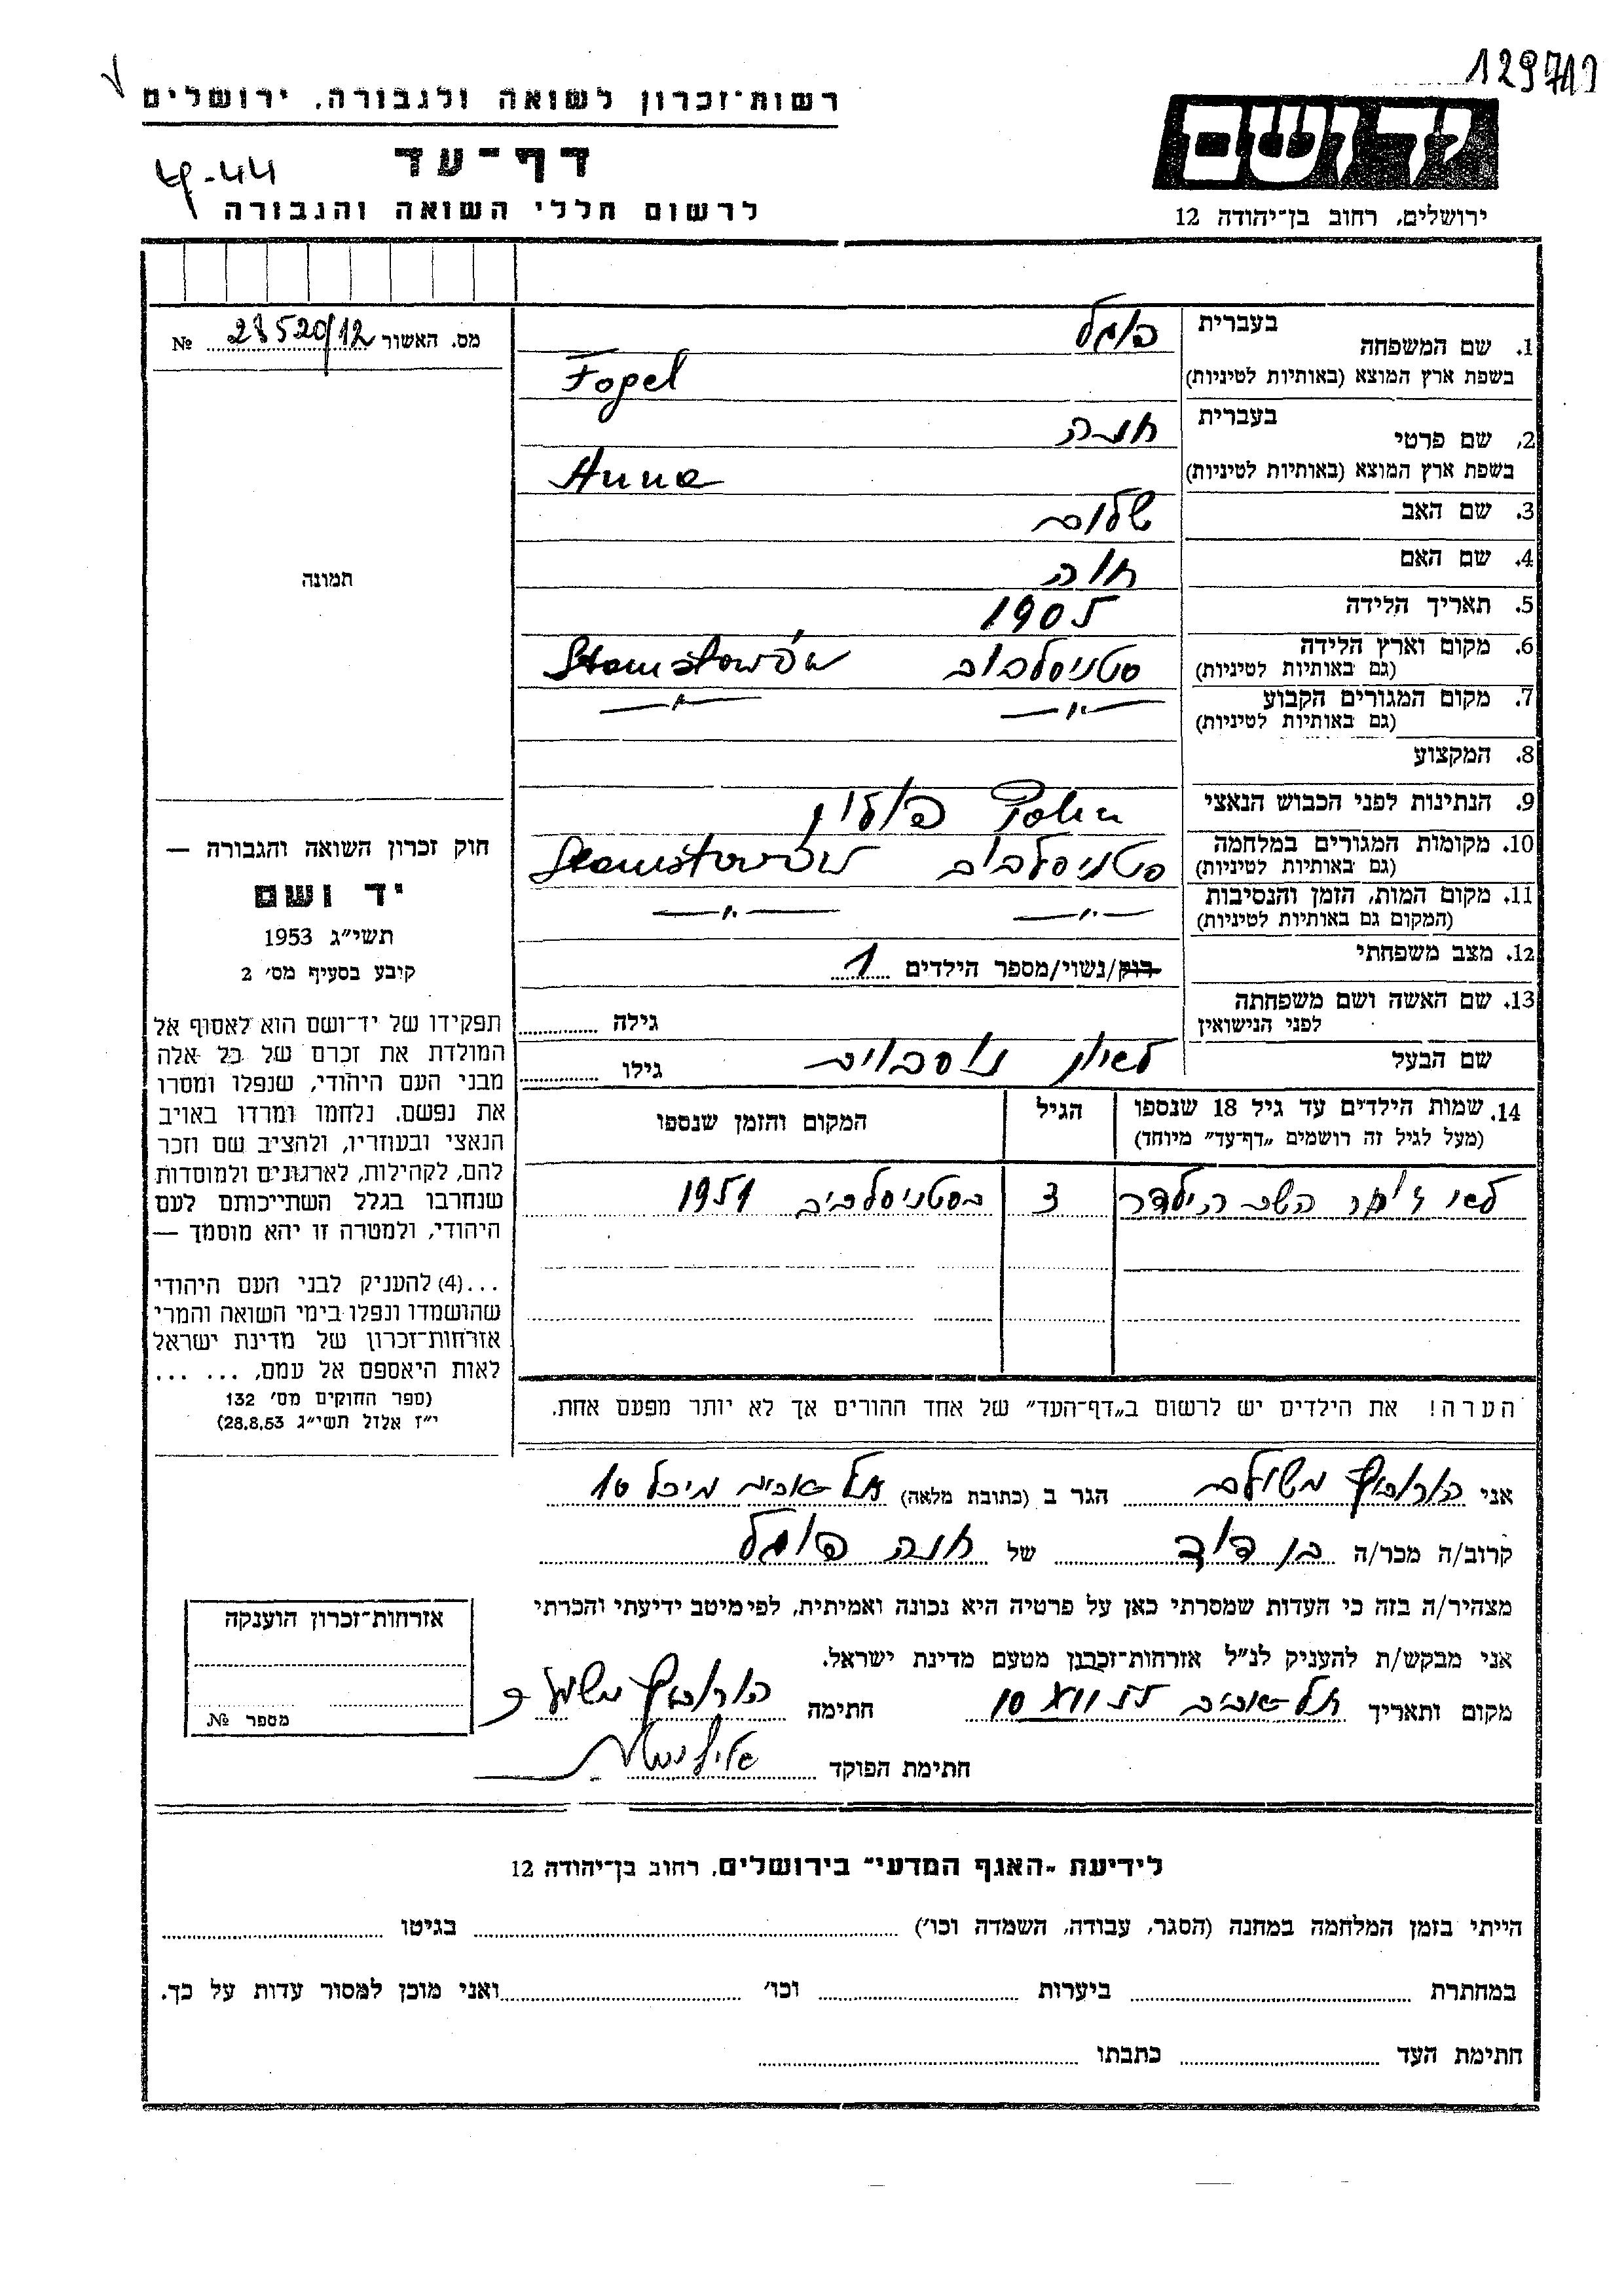 129719
רשות־זכרון לשואה ולגבורה, ירושלים
דף־עד
לרשום חללי השואה והגבורה
יד ושם
ירושלים, רחוב בן־יהודה 12
מס. האשור 28520/12 №
תמונה
1. שם המשפחה
בעברית פוגל
בשפת ארץ המוצא (באותיות לטיניות) Fogel
2. שם פרטי
בעברית חנה
בשפת ארץ המוצא (באותיות לטיניות) Anna
3. שם האב שלום
4. שם האם חוה
5. תאריך הלידה 1905
6. מקום וארץ הלידה סטניסלבוב Stanisławów
(גם באותיות לטיניות)
7. מקום המגורים הקבוע —"— —"—
(גם באותיות לטיניות)
8. המקצוע
9. הנתינות לפני הכבוש הנאצי פולין
10. מקומות המגורים במלחמה סטניסלבוב Stanisławów
(גם באותיות לטיניות)
11. מקום המות, הזמן והנסיבות —"— —"—
(המקום גם באותיות לטיניות)
12. מצב משפחתי רוק/נשוי/מספר הילדים 1
13. שם האשה ושם משפחתה גילה
לפני הנישואין
שם הבעל גילו
14. שמות הילדים עד גיל 18 שנספו הגיל המקום והזמן שנספו
(מעל לגיל זה רושמים „דף־עד" מיוחד)
הילדה 3 1951
הערה! את הילדים יש לרשום ב„דף־העד" של אחד ההורים אך לא יותר מפעם אחת.
חוק זכרון השואה והגבורה —
יד ושם
תשי"ג 1953
קובע בסעיף מס׳ 2
תפקידו של יד־ושם הוא לאסוף אל
המולדת את זכרם של כל אלה
מבני העם היהודי, שנפלו ומסרו
את נפשם, נלחמו ומרדו באויב
הנאצי ובעוזריו, ולהציב שם וזכר
להם, לקהילות, לארגונים ולמוסדות
שנחרבו בגלל השתייכותם לעם
היהודי, ולמטרה זו יהא מוסמך —
...(4) להעניק לבני העם היהודי
שהושמדו ונפלו בימי השואה והמרי
אזרחות־זכרון של מדינת ישראל
לאות היאספם אל עמם, ... ...
(ספר החוקים מס׳ 132
י"ז אלול תשי"ג 28.8.53)
אני הורוביץ משולם הגר ב (כתובת מלאה) תל־אביב מיכל 10
קרוב/ה מכר/ה בן דוד של חנה פוגל
מצהיר/ה בזה כי העדות שמסרתי כאן על פרטיה היא נכונה ואמיתית, לפי מיטב ידיעתי והכרתי
אני מבקש/ת להעניק לנ"ל אזרחות־זכרון מטעם מדינת ישראל.
מקום ותאריך תל־אביב 10 VII 55 חתימה הורוביץ משולם
חתימת הפוקד
אזרחות־זכרון הוענקה
מספר №
לידיעת „האגף המדעי" בירושלים, רחוב בן־יהודה 12
הייתי בזמן המלחמה במחנה (הסגר, עבודה, השמדה וכו׳) בגיטו
במחתרת ביערות וכו׳ ואני מוכן למסור עדות על כך.
חתימת העד כתבתו